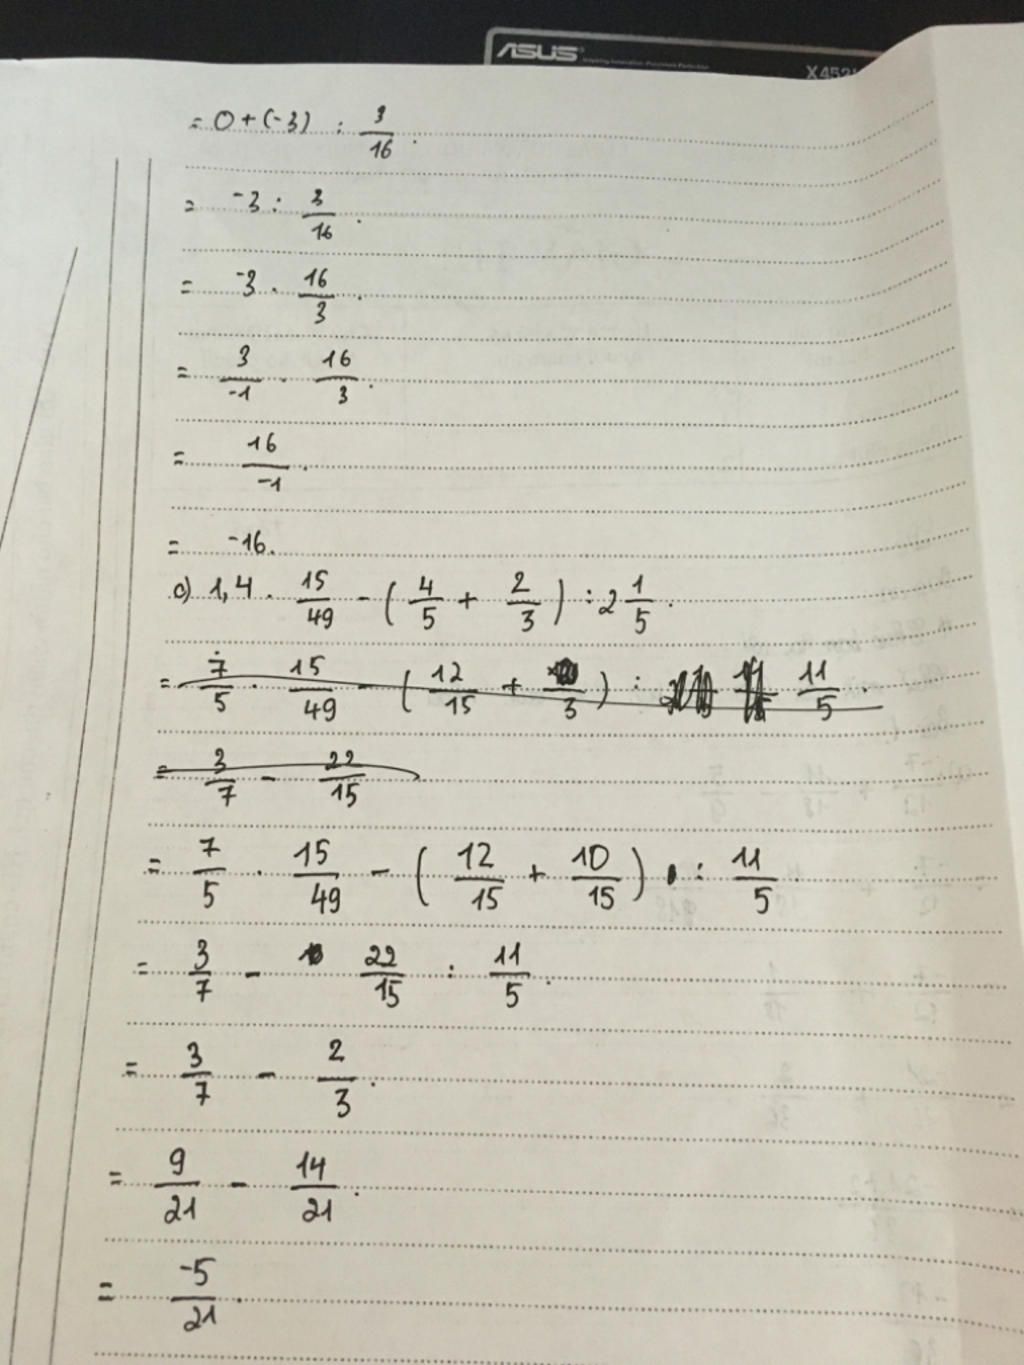 ASUS
= 0 + (-3) : 3/16.
= -3 : 3/16.
= -3 . 16/3.
= 3/-1 . 16/3.
= 16/-1.
= -16.
c) 1,4 . 15/49 - (4/5 + 2/3) : 2 1/5.
= 7/5 . 15/49 - (12/15 + /3) : 11/5.
= 3/7 - 22/15
= 7/5 . 15/49 - (12/15 + 10/15) : 11/5.
= 3/7 - 22/15 : 11/5.
= 3/7 - 2/3.
= 9/21 - 14/21.
= -5/21.